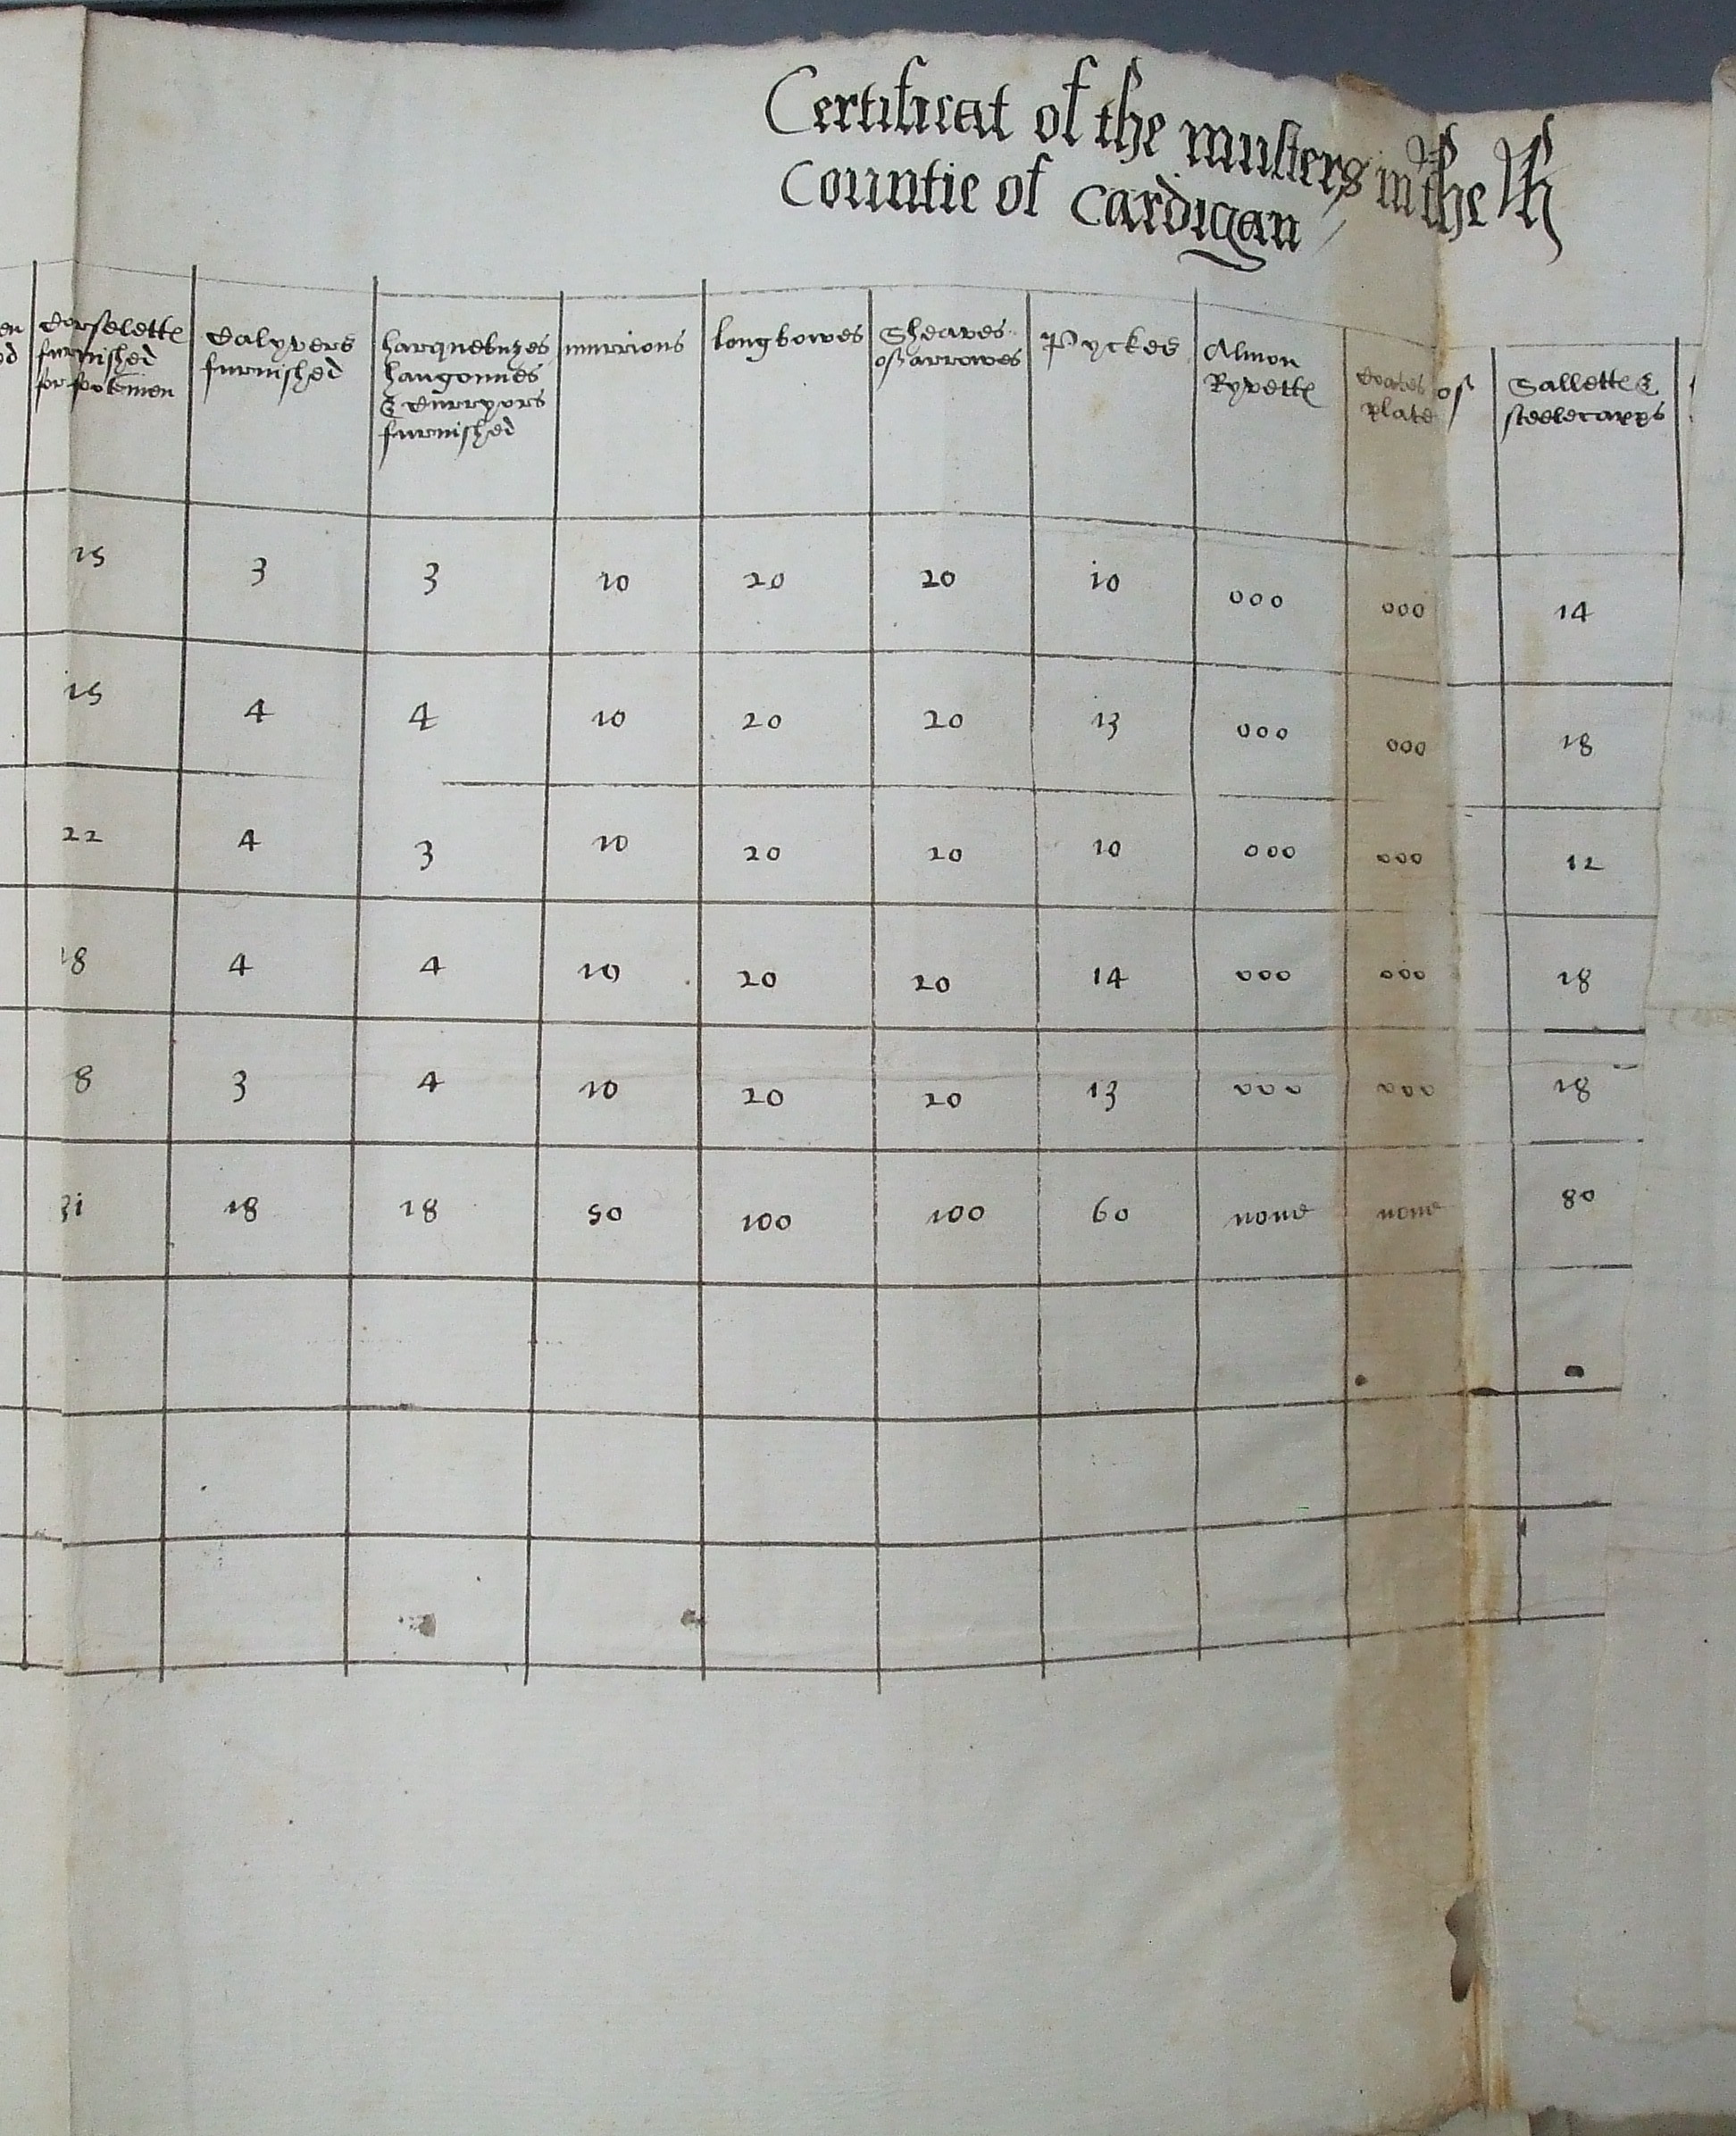 Certificat of the musters in the
Countie of Cardigan
Corselette furnished for footemen | Calyvers furnished | harquebuzes haugonnes & Curryors furnished | murrions | longbowes | Sheaves of arrowes | Pyckes | Almon Ryvette | Coates of plate | Sallette & steelecapps
15 3 3 10 20 20 10 000 000 14
15 4 4 10 20 20 13 000 000 18
22 4 3 10 20 20 10 000 000 12
18 4 4 10 20 20 14 000 000 18
8 3 4 10 20 20 13 000 000 18
18 18 50 100 100 60 none none 80